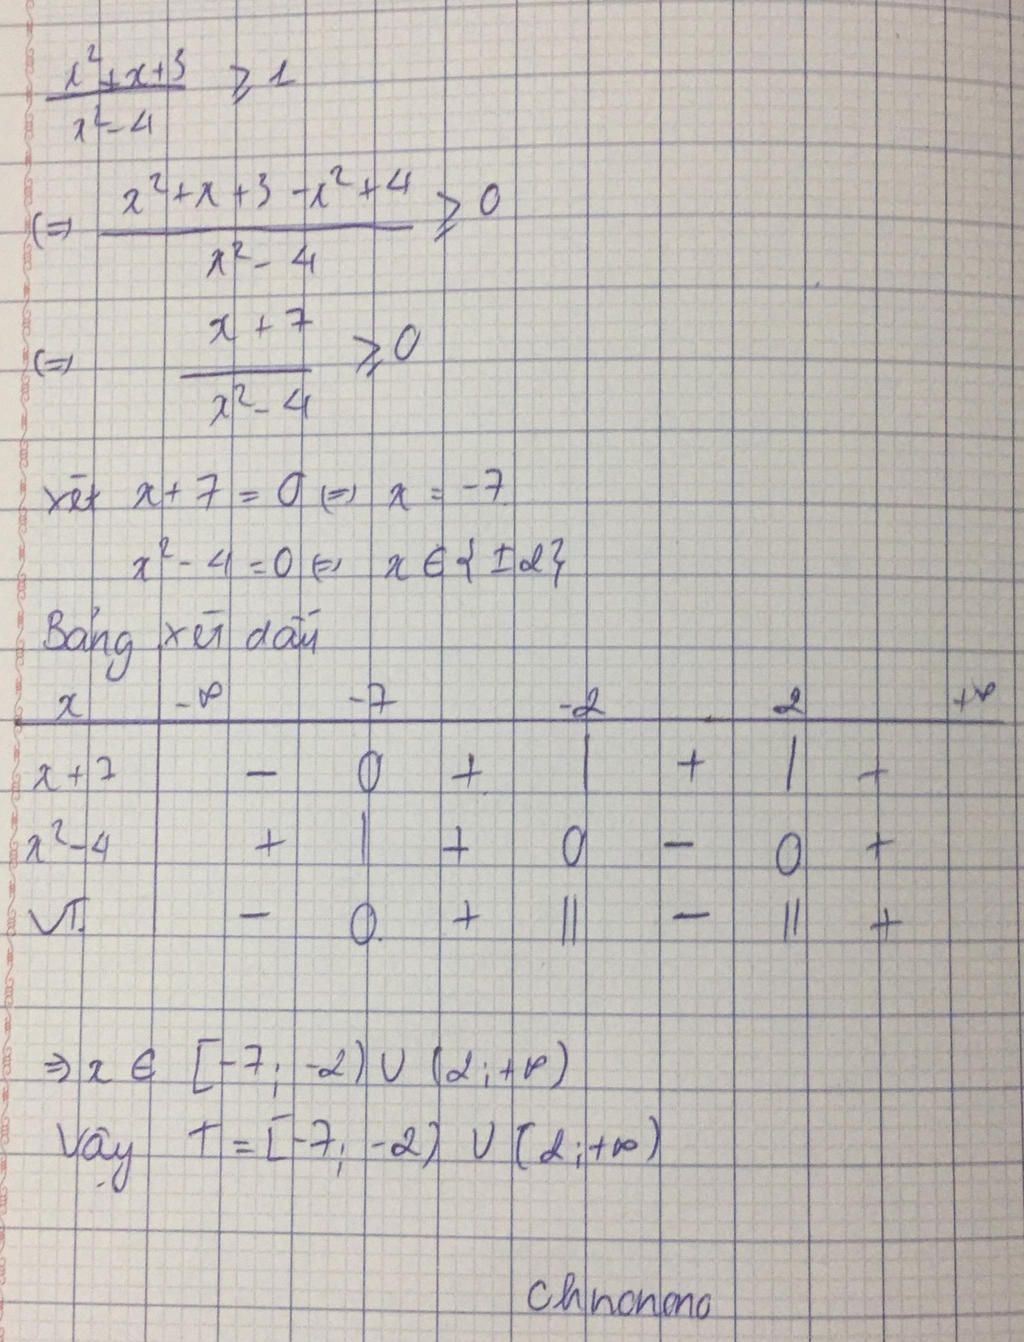 x²+x+3 / x²-4 ⩾ 1
(=) x²+x+3-x²+4 / x²-4 ⩾ 0
(=) x+7 / x²-4 ⩾ 0
xét x+7=0 (=) x=-7
x²-4=0 (=) x∈{±2}
Bảng xét dấu
x -∞ -7 -2 2 +∞
x+7 - 0 + | + | +
x²-4 + | + 0 - 0 +
VT - 0 + || - || +
=> x ∈ [-7; -2) ∪ (2;+∞)
Vậy T=[-7; -2) ∪ (2;+∞)
Chnonono